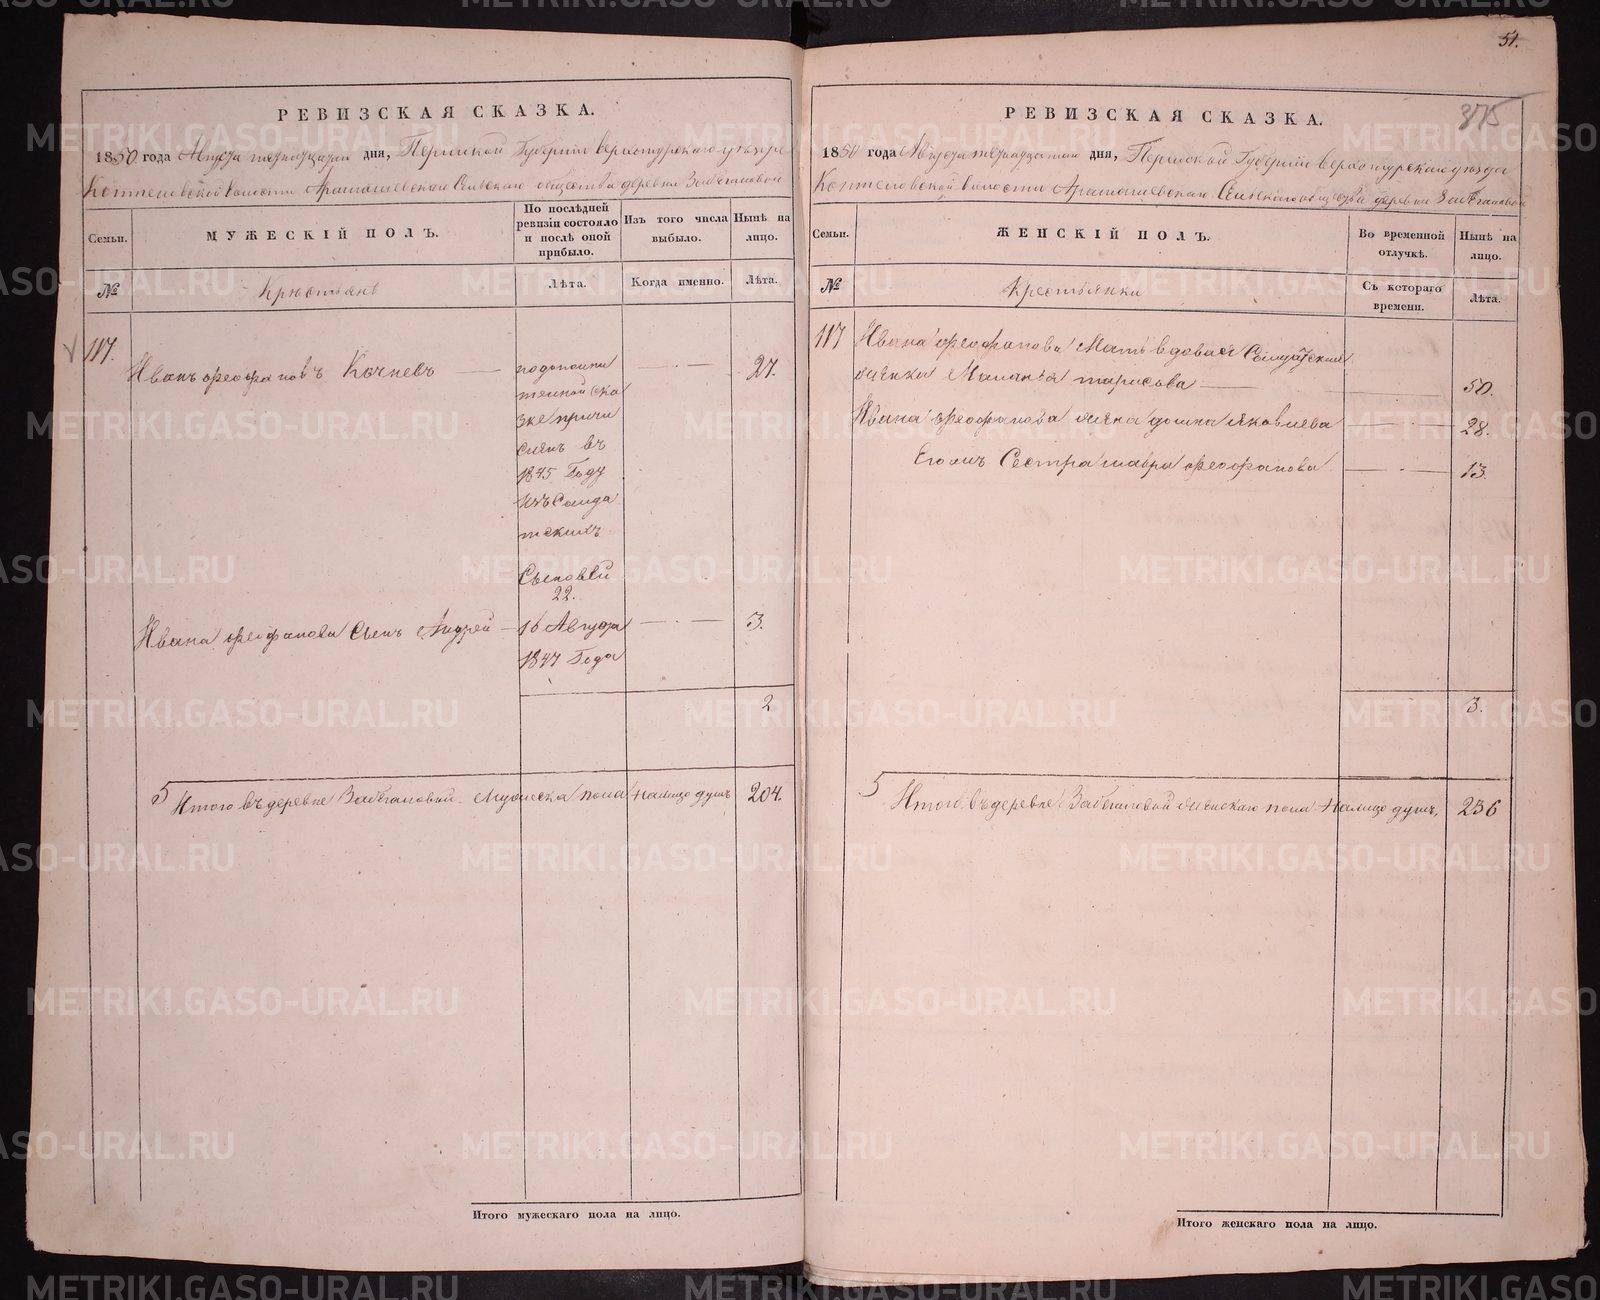 РЕВИЗСКАЯ СКАЗКА.
1850 года Августа дня, Пермской Губернии Верхотурскаго уезда
Коптеловской волости Арамашевскаго Сельскаго общества деревни Забегаловой
Семьи.
МУЖЕСКІЙ ПОЛЪ.
По послѣдней ревизіи состояло и послѣ оной прибыло.
Изъ того числа выбыло.
Нынѣ на лицо.
№
Крестьяне
Лѣта.
Когда именно.
Лѣта.
117.
Иванъ Феофановъ Кочневъ
27.
по дополни
тельной ска
зке причи
сленъ въ
1845 Году
изъ Солда
тскихъ
Сыновей
22.
Ивана Феофанова Сынъ Андрей
16 Августа
3.
1847 Года
2
5
Итого въ деревне Забегаловой Мужеска пола налицо душъ 204.
Итого мужескаго пола на лицо.
51.
375
РЕВИЗСКАЯ СКАЗКА.
1850 года Августа дня, Пермской Губернии Верхотурскаго уезда
Коптеловской волости Арамашевскаго Сельскаго общества деревни Забегаловой
Семьи.
ЖЕНСКІЙ ПОЛЪ.
Во временной отлучкѣ.
Нынѣ на лицо.
№
Крестьянки
Съ котораго времени.
Лѣта.
117
Ивана Феофанова Мать вдовая Солдатская
женка Маланья 50.
Ивана Феофанова жена Домна Яковлева 28.
Его же Сестра Мавра Феофанова 13.
3.
5
Итого въ деревне Забегаловой женскаго пола налицо душъ, 236
Итого женскаго пола на лицо.
METRIKI.GASO-URAL.RU